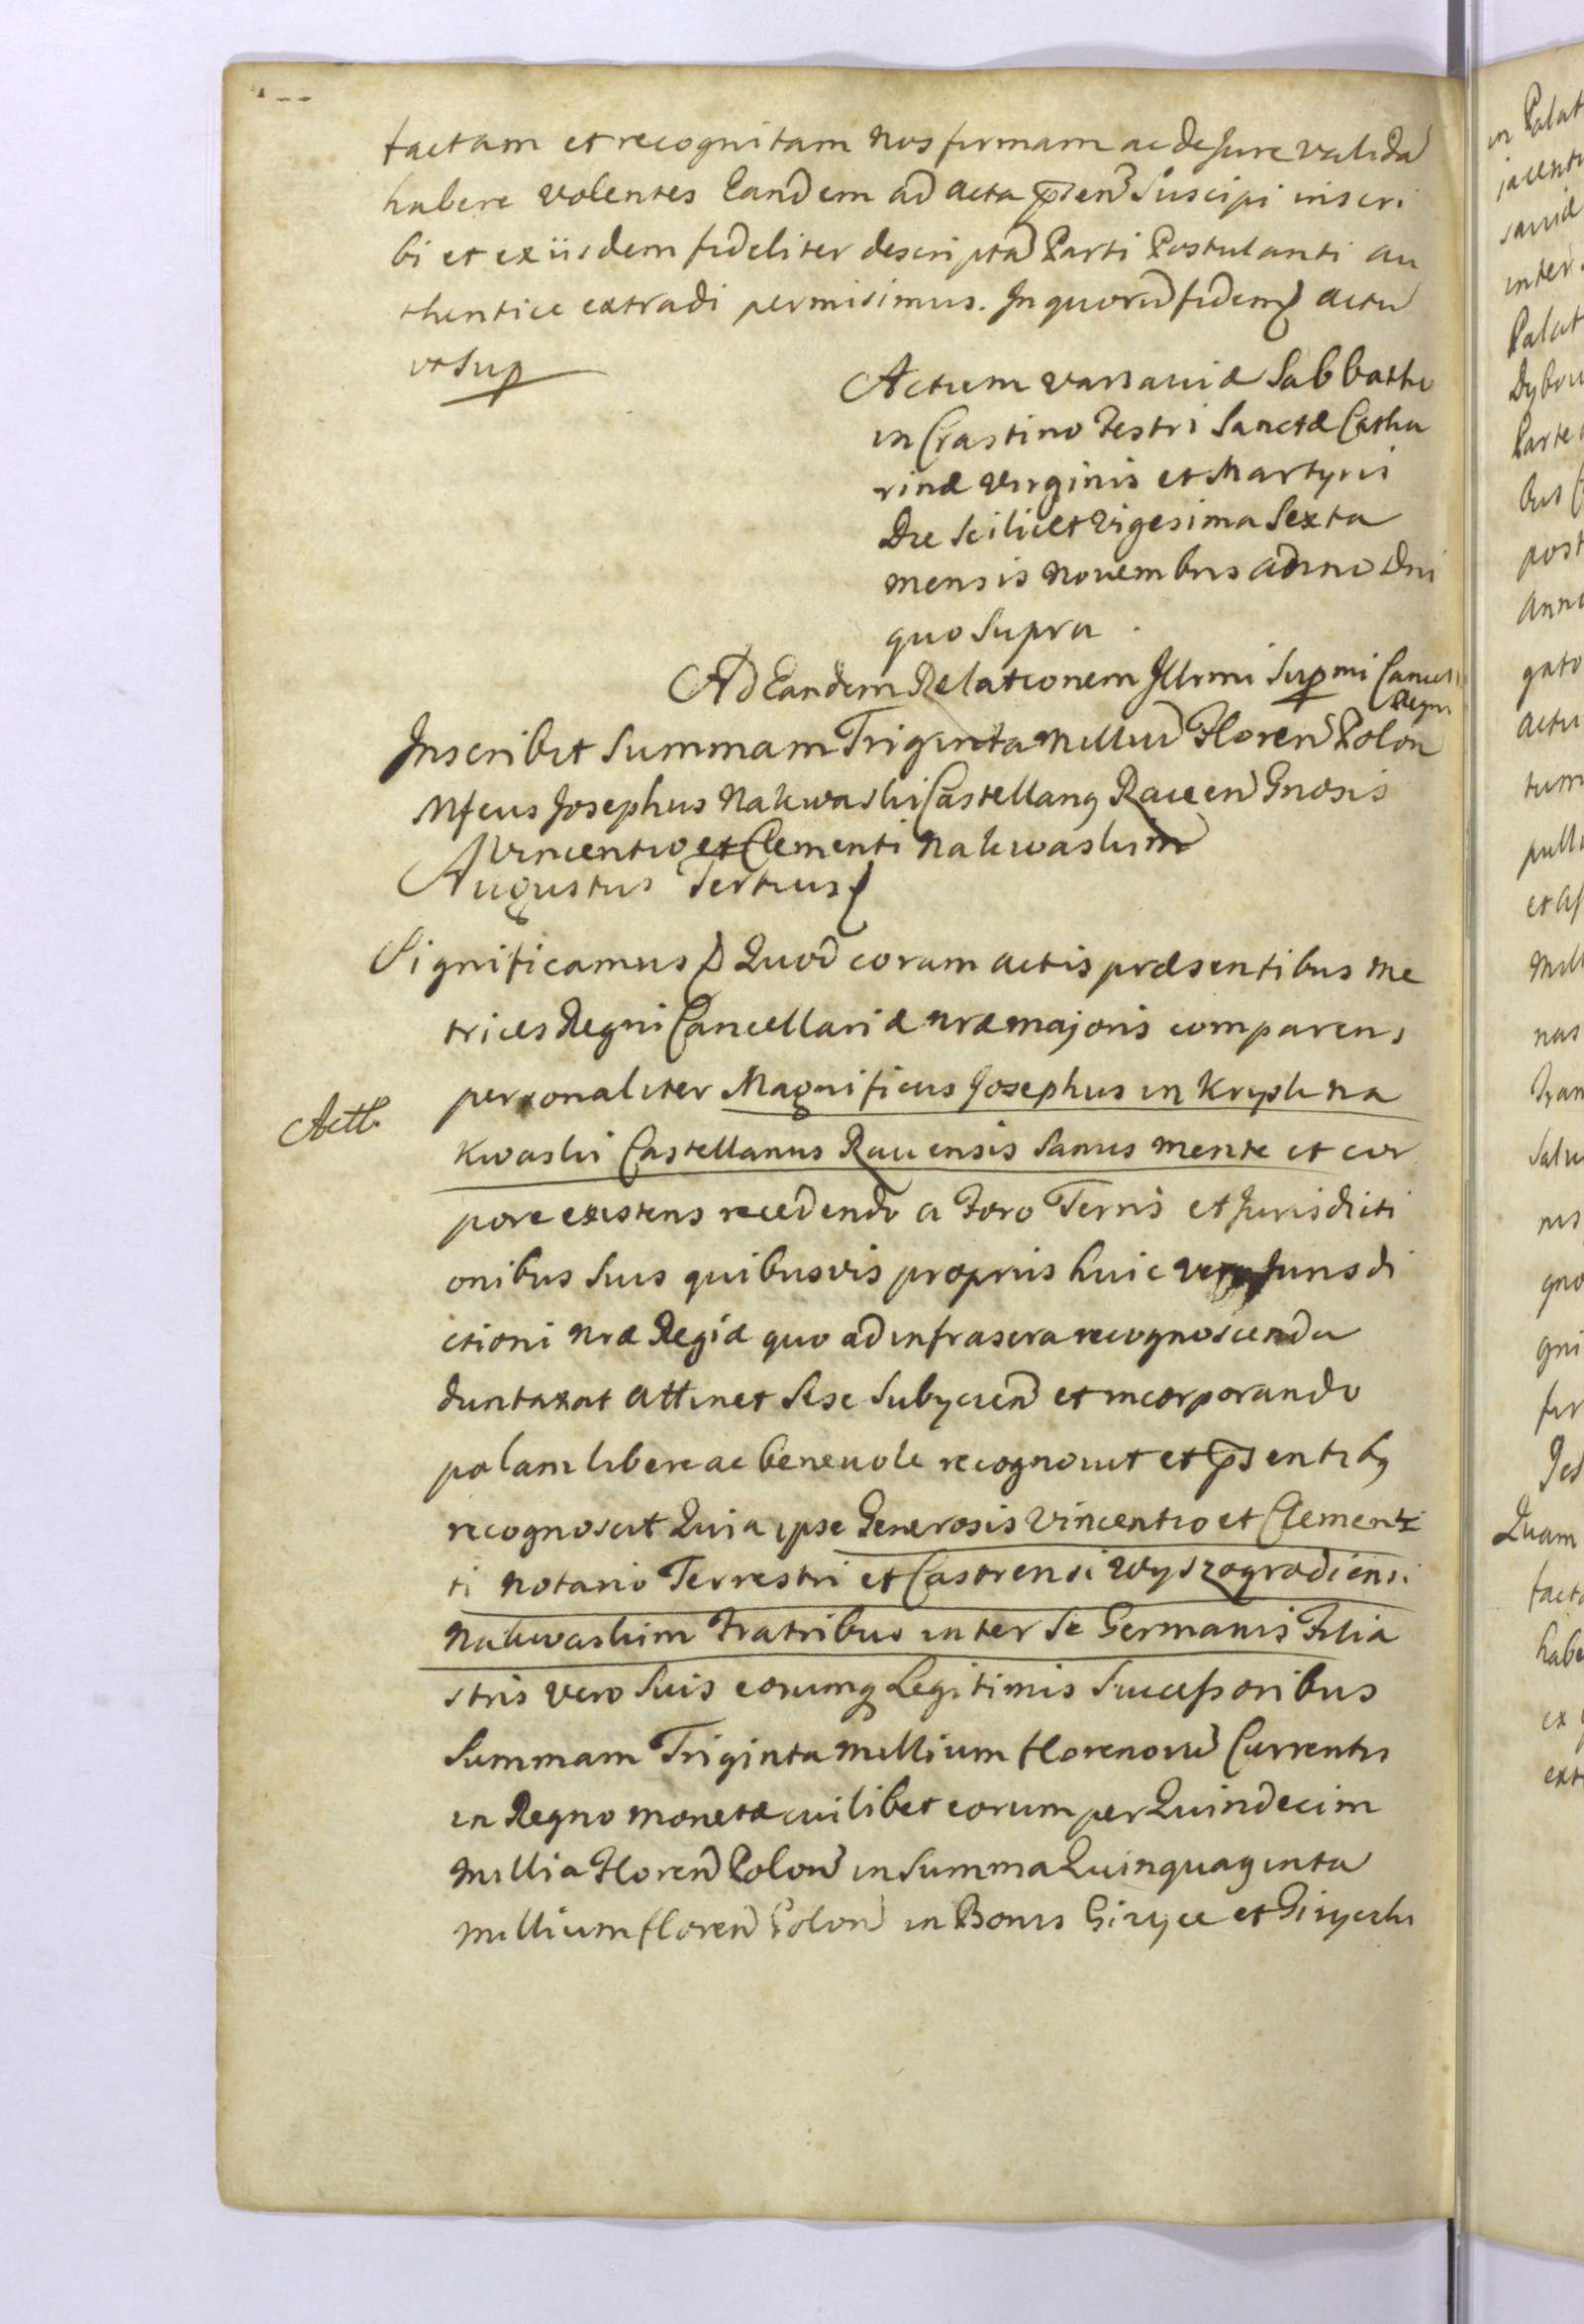 factam et recognitam nos firmam ac de Jure validã
habere volentes Eandem ad acta p̃sen̄ Suscipi inscri
bi et ex iisdem fideliter descriptã Parti Postulanti au
thentice extradi permisimus. In quorũ fidem actũ
ut Sup
Actum varsaviæ Sabbatho
in Crastino Festi Sanctæ Catha
rinæ Virginis et Martyris
Die Scilicet Vigesima Sexta
mensis Novembris anno Dni
quo Supra.
Ad Eandem Relationem Illrmi Supmi Cancell
Regni
Inscribit Summam Triginta milliũ Floren̄ Polon
Mfcus Josephus Nakwaski Castellanꝯ Raven̄ Gnosis
Vincentio et Clementi Nakwaskim
Augustus Tertius
Significamus Quod coram actis præsentibus Me
trices Regni Cancellariæ nræ majoris comparens
personaliter Magnificus Josephus in Krysk Na
Actt.
kwaski Castellanus Ravensis Sanus mente et cor
pore existens recedendo a Foro Terris et Jurisdicti
onibus Suis quibusvis propriis huic vero Jurisdi
ctioni Nræ Regiæ quo ad infrascra recognoscenda
duntaxat attinet Sese Subycien̄ et incorporando
palam libere ac benevole recognovit et p̃sentibꝯ
recognoscit Quia ipse Generosis Vincentio et Clemen
ti Notario Terrestri et Castrensi Wyszogradiensi
Nakwaskim Fratribus inter Se Germanis Filia
stris vero Suis eorumq Legitimis Successoribus
Summam Triginta millium florenorũ Currentis
in Regno monetæ cuilibet eorum per Quindecim
Millia Floren̄ Polon̄ in Summa Quinquaginta
millium floren̄ Polon̄ in Bonis Giżyce et Giżyczki